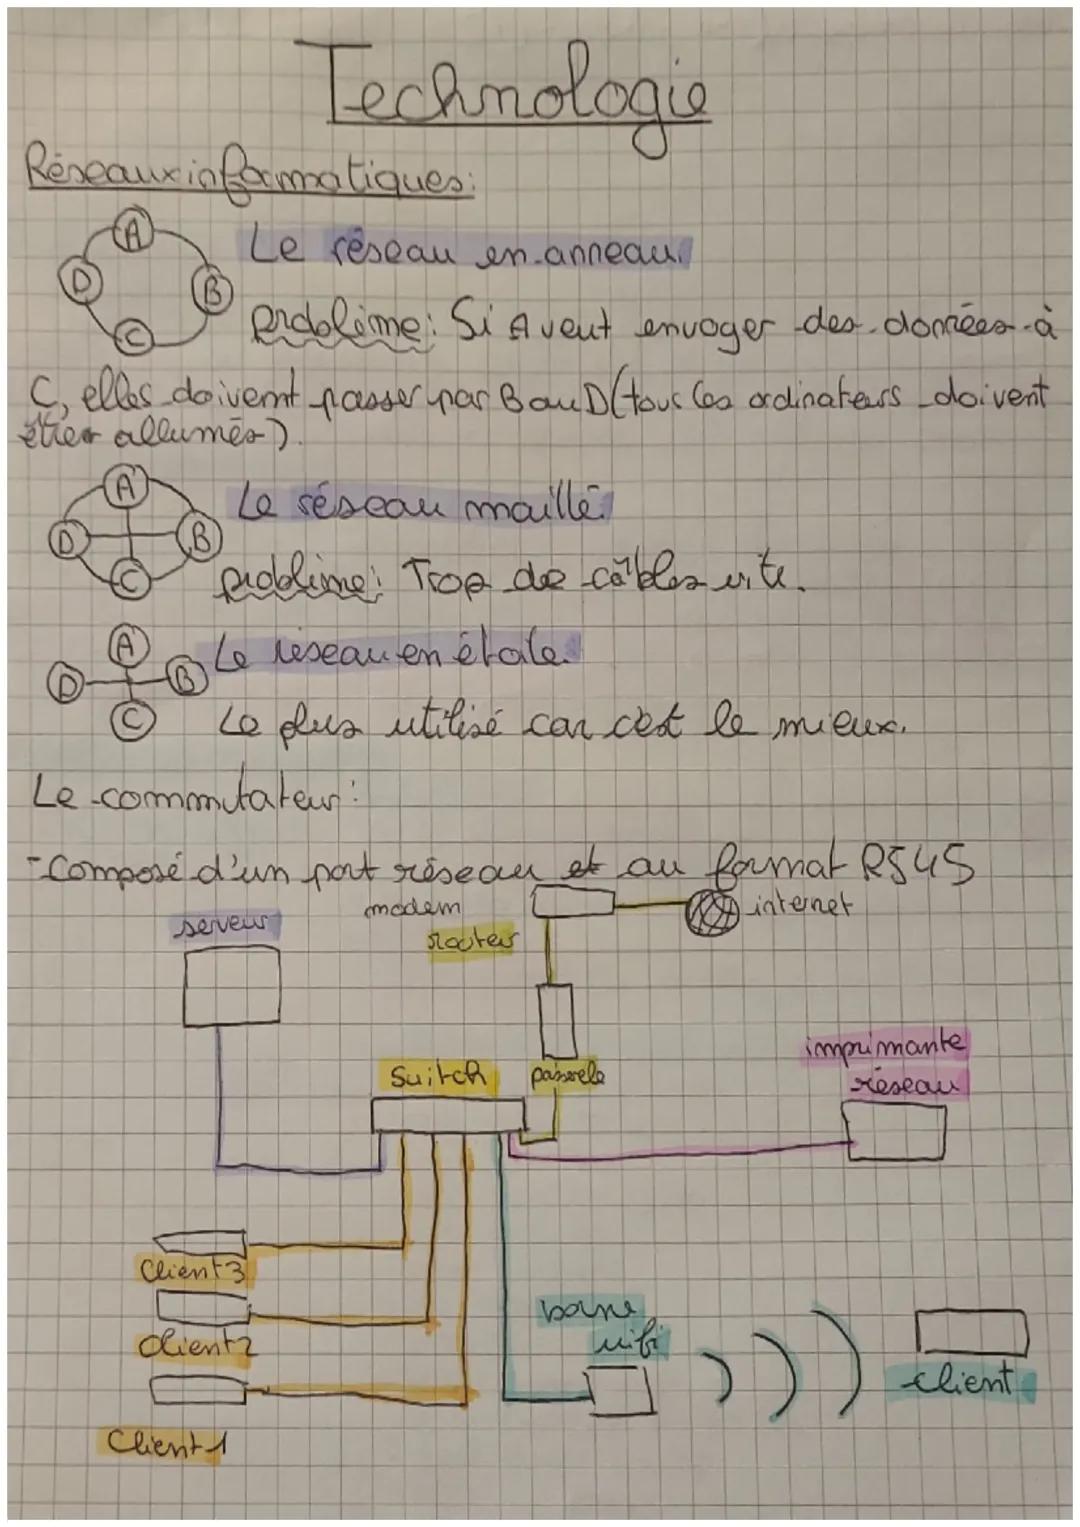 Technologie
Réseaux informatiques:
A
D
B
C
Le réseau en anneau.
problème: Si A veut envoyer des données à
C, elles doivent passer par B ou D (tous les ordinateurs doivent
être allumés).
A
D
B
C
Le réseau maillé.
problème: Trop de câbles vite.
A
D
B
C
Le réseau en étoile.
Le plus utilisé car c'est le mieux.
Le commutateur:
- Composé d'un port réseau et au format RJ45
modem
internet
serveur
routeur
imprimante
réseau
Switch
passerele
Client 3
Client 2
Client 1
borne
wifi
client